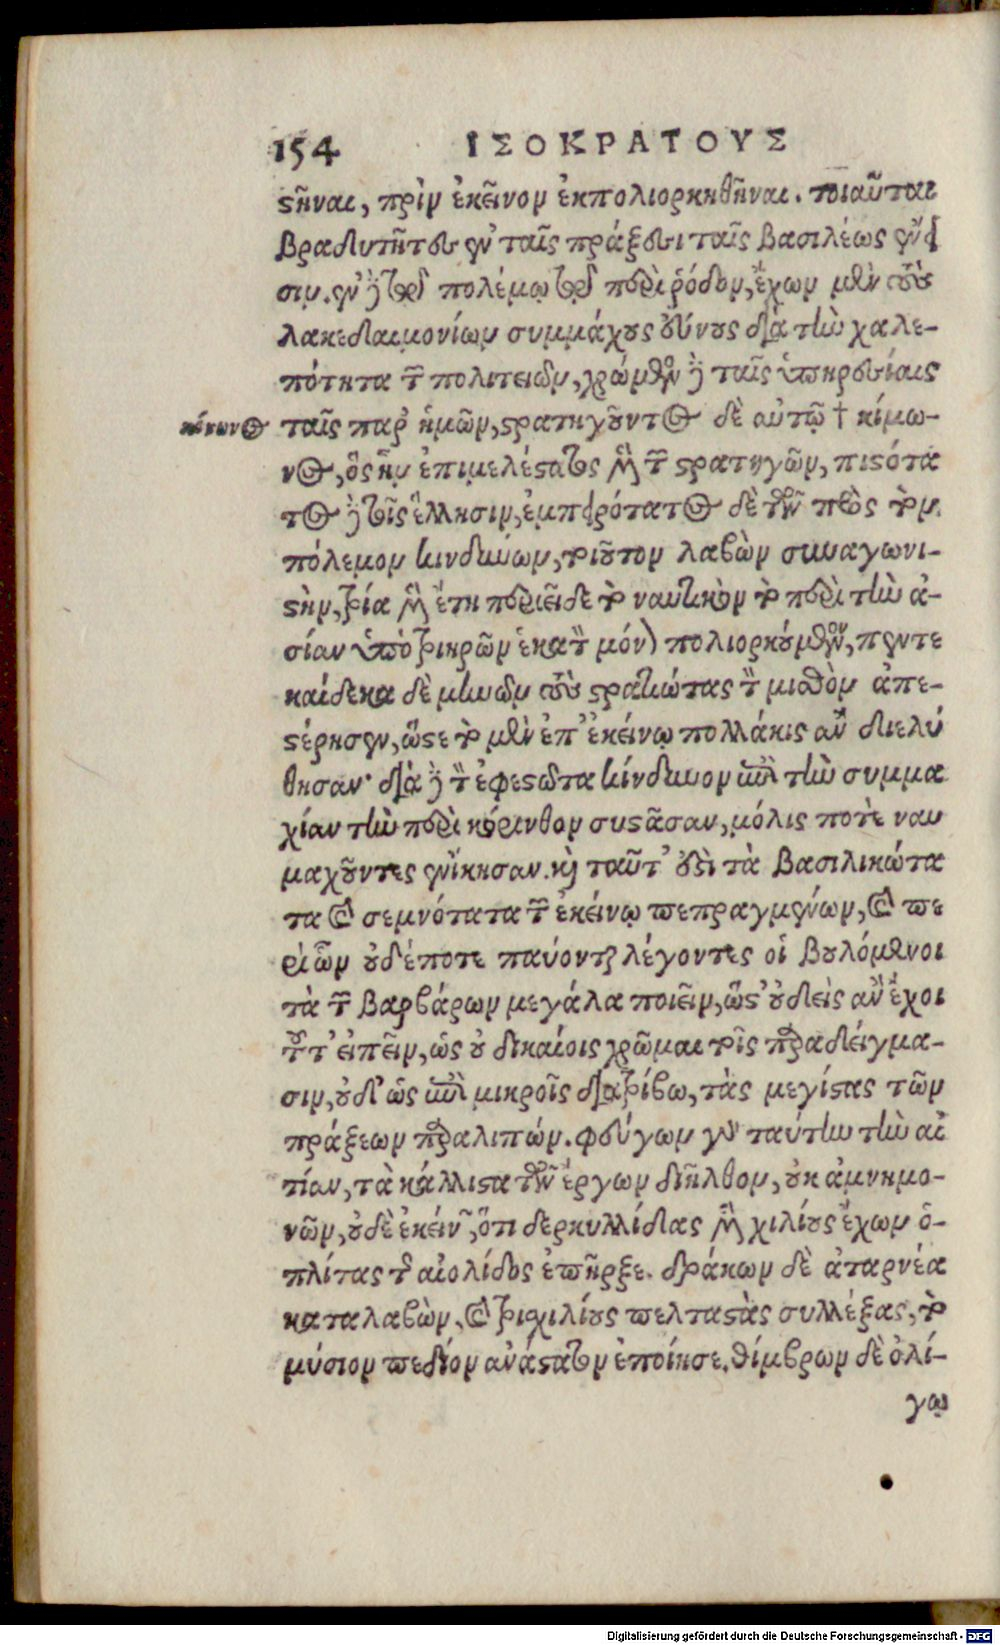 154 ΙΣΟΚΡΑΤΟΥΣ
στῆναι, πρὶν ἐκεῖνον ἐκπολιορκηθῆναι. τοιαῦται
βραδυτῆτες ἐν ταῖς πράξεσι ταῖς βασιλέως ἔνει
σιν. ἐν δὲ τῷ πολέμῳ τῷ περὶ ῥόδον, ἔχων μὲν τοὺς
λακεδαιμονίων συμμάχους εὔνους διὰ τὴν χαλε-
πότητα τῶν πολιτειῶν, χρώμενος δὲ ταῖς ὑπηρεσίαις
κόνωνος
ταῖς παρ' ἡμῶν, στρατηγοῦντος δὲ αὐτῷ † κίμω-
νος, ὃς ἦν ἐπιμελέστατος μὲν τῶν στρατηγῶν, πιστότα
τος δὲ τοῖς ἕλλησιν, ἐμπειρότατος δὲ τῶν πρὸς τὸν
πόλεμον κινδύνων, τοιοῦτον λαβὼν συναγωνι-
στὴν, τρία μὲν ἔτη περιεῖδε τὸ ναυτικὸν τὸ περὶ τὴν ἀ-
σίαν ὑπὸ τριηρῶν ἑκατὸν μόνον πολιορκούμενον, πεντε
καίδεκα δὲ μηνῶν τοὺς στρατιώτας τὸν μισθὸν ἀπε-
στέρησεν, ὥστε τὸ μὲν ἐπ' ἐκείνῳ πολλάκις ἂν διελύ
θησαν· διὰ δὲ τὸν ἐφεστῶτα κίνδυνον καὶ τὴν συμμα
χίαν τὴν περὶ κόρινθον συστᾶσαν, μόλις ποτὲ ναυ
μαχοῦντες ἐνίκησαν. καὶ ταῦτ' ἐστὶ τὰ βασιλικώτα
τα καὶ σεμνότατα τῶν ἐκείνῳ πεπραγμένων, καὶ πε
ρὶ ὧν οὐδέποτε παύονται λέγοντες οἱ βουλόμενοι
τὰ τῶν βαρβάρων μεγάλα ποιεῖν, ὥστ' οὐδεὶς ἂν ἔχοι
τοῦτ' εἰπεῖν, ὡς οὐ δικαίοις χρῶμαι τοῖς παραδείγμα-
σιν, οὐδ' ὡς ἐπὶ μικροῖς διατρίβω, τὰς μεγίστας τῶν
πράξεων παραλιπών. φεύγων γὰρ ταύτην τὴν αἰ
τίαν, τὰ κάλλιστα τῶν ἔργων διῆλθον, οὐκ ἀμνημο-
νῶν, οὐδὲ ἐκείνων, ὅτι δερκυλλίδας μὲν χιλίους ἔχων ὁ-
πλίτας τῆς αἰολίδος ἐπῆρξε. δράκων δὲ ἀταρνέα
καταλαβὼν, καὶ τρισχιλίους πελταστὰς συλλέξας, τὸ
μύσιον πεδίον ἀνάστατον ἐποίησε. θίμβρων δὲ ὀλί-
γῳ
Digitalisierung gefördert durch die Deutsche Forschungsgemeinschaft - DFG